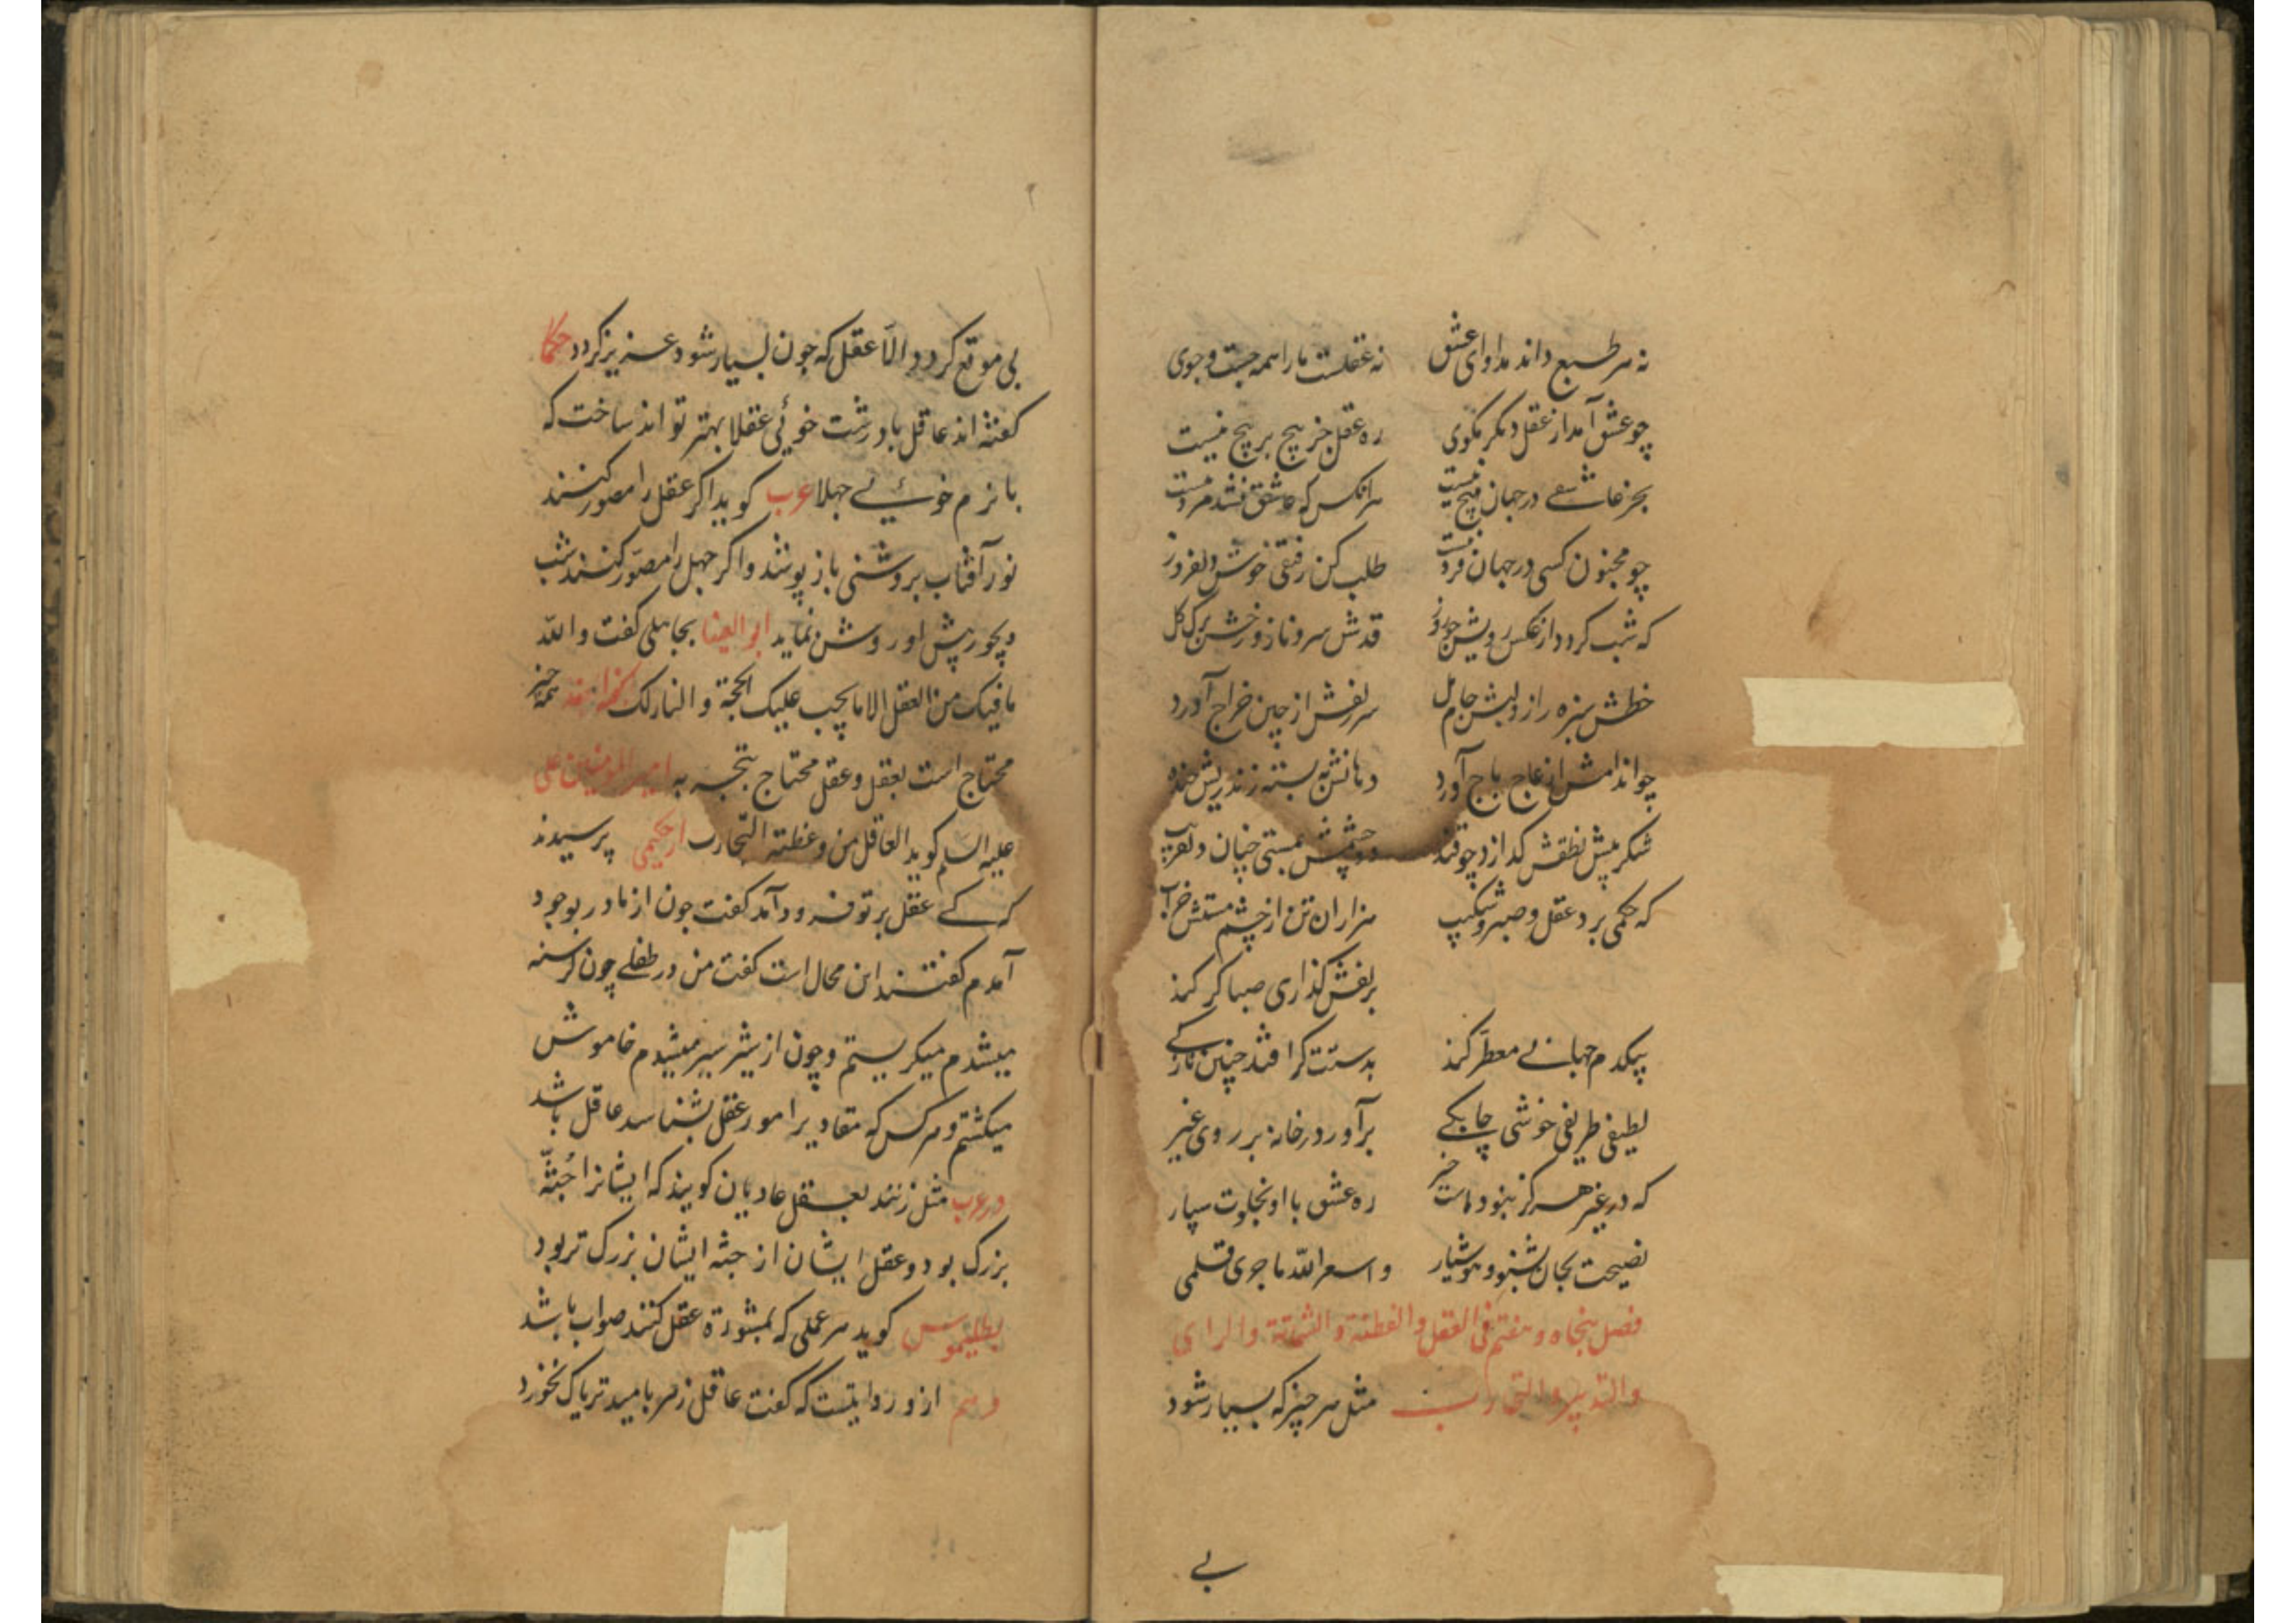 نه هر طبع داند مداوای عشق نه عقلست ما را همه جست و جوی
چو عشق آمد از عقل دیکر مکوی ره عقل جز پیچ بر پیچ نیست
بجز عاشقی در جهان هیچ نیست هر انکس که عاشق نشد مرد نیست
چو مجنون کسی در جهان فرد نیست طلب کن رفیقی خوش دلفروز
که شب کردد از عکس رویش چو روز قدش سرو ناز و رخش برک کل
خطش سبزه راز ولبش جام مل سر زلفش از چین خراج آورد
چو اندامش از عاج باج آورد دهانش به پسته زند ریش خند
شکر پیش نطقش کدازد چو قند دو چشمش بمستی چنان دلفریب
که حکمی برد عقل و صبر و شکیب هزاران تن از چشم مستش خراب
بزلفش کذاری صبا کر کند
بیکدم جهانی معطر کند بدستت کرا افتد چنین نازکی
لطیفی ظریفی خوشی چابکی برآور در خانه بر روی غیر
که در غیر هرکز نبودست خیر ره عشق با او بخلوت سپار
نصیحت بجان بشنو و هوشیار و استغفر الله ما جری قلمی
فصل پنجاه و هفتم فی العقل والفطنة و والرای
والتدبیر والتجارب مثل هر چیز که بسیار شود
بی
بی موقع کردد الّا عقل که چون بسیار شود عزیز کردد حکما
کفته اند عاقل با درشت خوئی عقلا بهتر تواند ساخت که
با نرم خوئی جهلا عرب کوید اکر عقل را مصور کنند
نور آفتاب بروشنی باز پوشد و اکر جهل را مصوّر کنند شب
دیجور پیش او روشن نماید ابو العینا بجاهلی کفت والله
ما فیک من العقل الا ما یجب علیک الحجة و النار لک همه چیز
محتاج است بعقل و عقل محتاج بتجربه امیر المومنین علی
علیه السلم کوید العاقل من وعظته التجارب از حکیمی پرسیدند
که کی عقل بر تو فرود آمد کفت چون از مادر بوجود
آمدم کفتند این محال است کفت من در طفلی چون کرسنه
میشدم میکریستم و چون از شیر سیر میشدم خاموش
میکشتم و هرکس که مقادیر امور عقل بشناسد عاقل باشد
در عرب مثل زنند بعقل عادیان کویند که ایشانرا جُثّه
بزرک بود و عقل ایشان از جثه ایشان بزرک تر بود
بطلیموس کوید هر عملی که بمشورة عقل کنند صواب باشد
و هم ازو روایتست که کفت عاقل زهر بامید تریاک نخورد